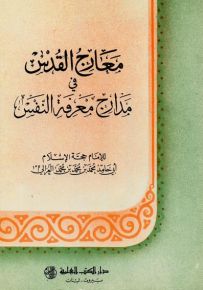 معارج القدس
في
مدارج معرفة النفس
للإمام حجة الإسلام
أبي حامد محمد بن محمد بن محمد الغزالي
دار الكتب العلمية
بيروت - لبنان